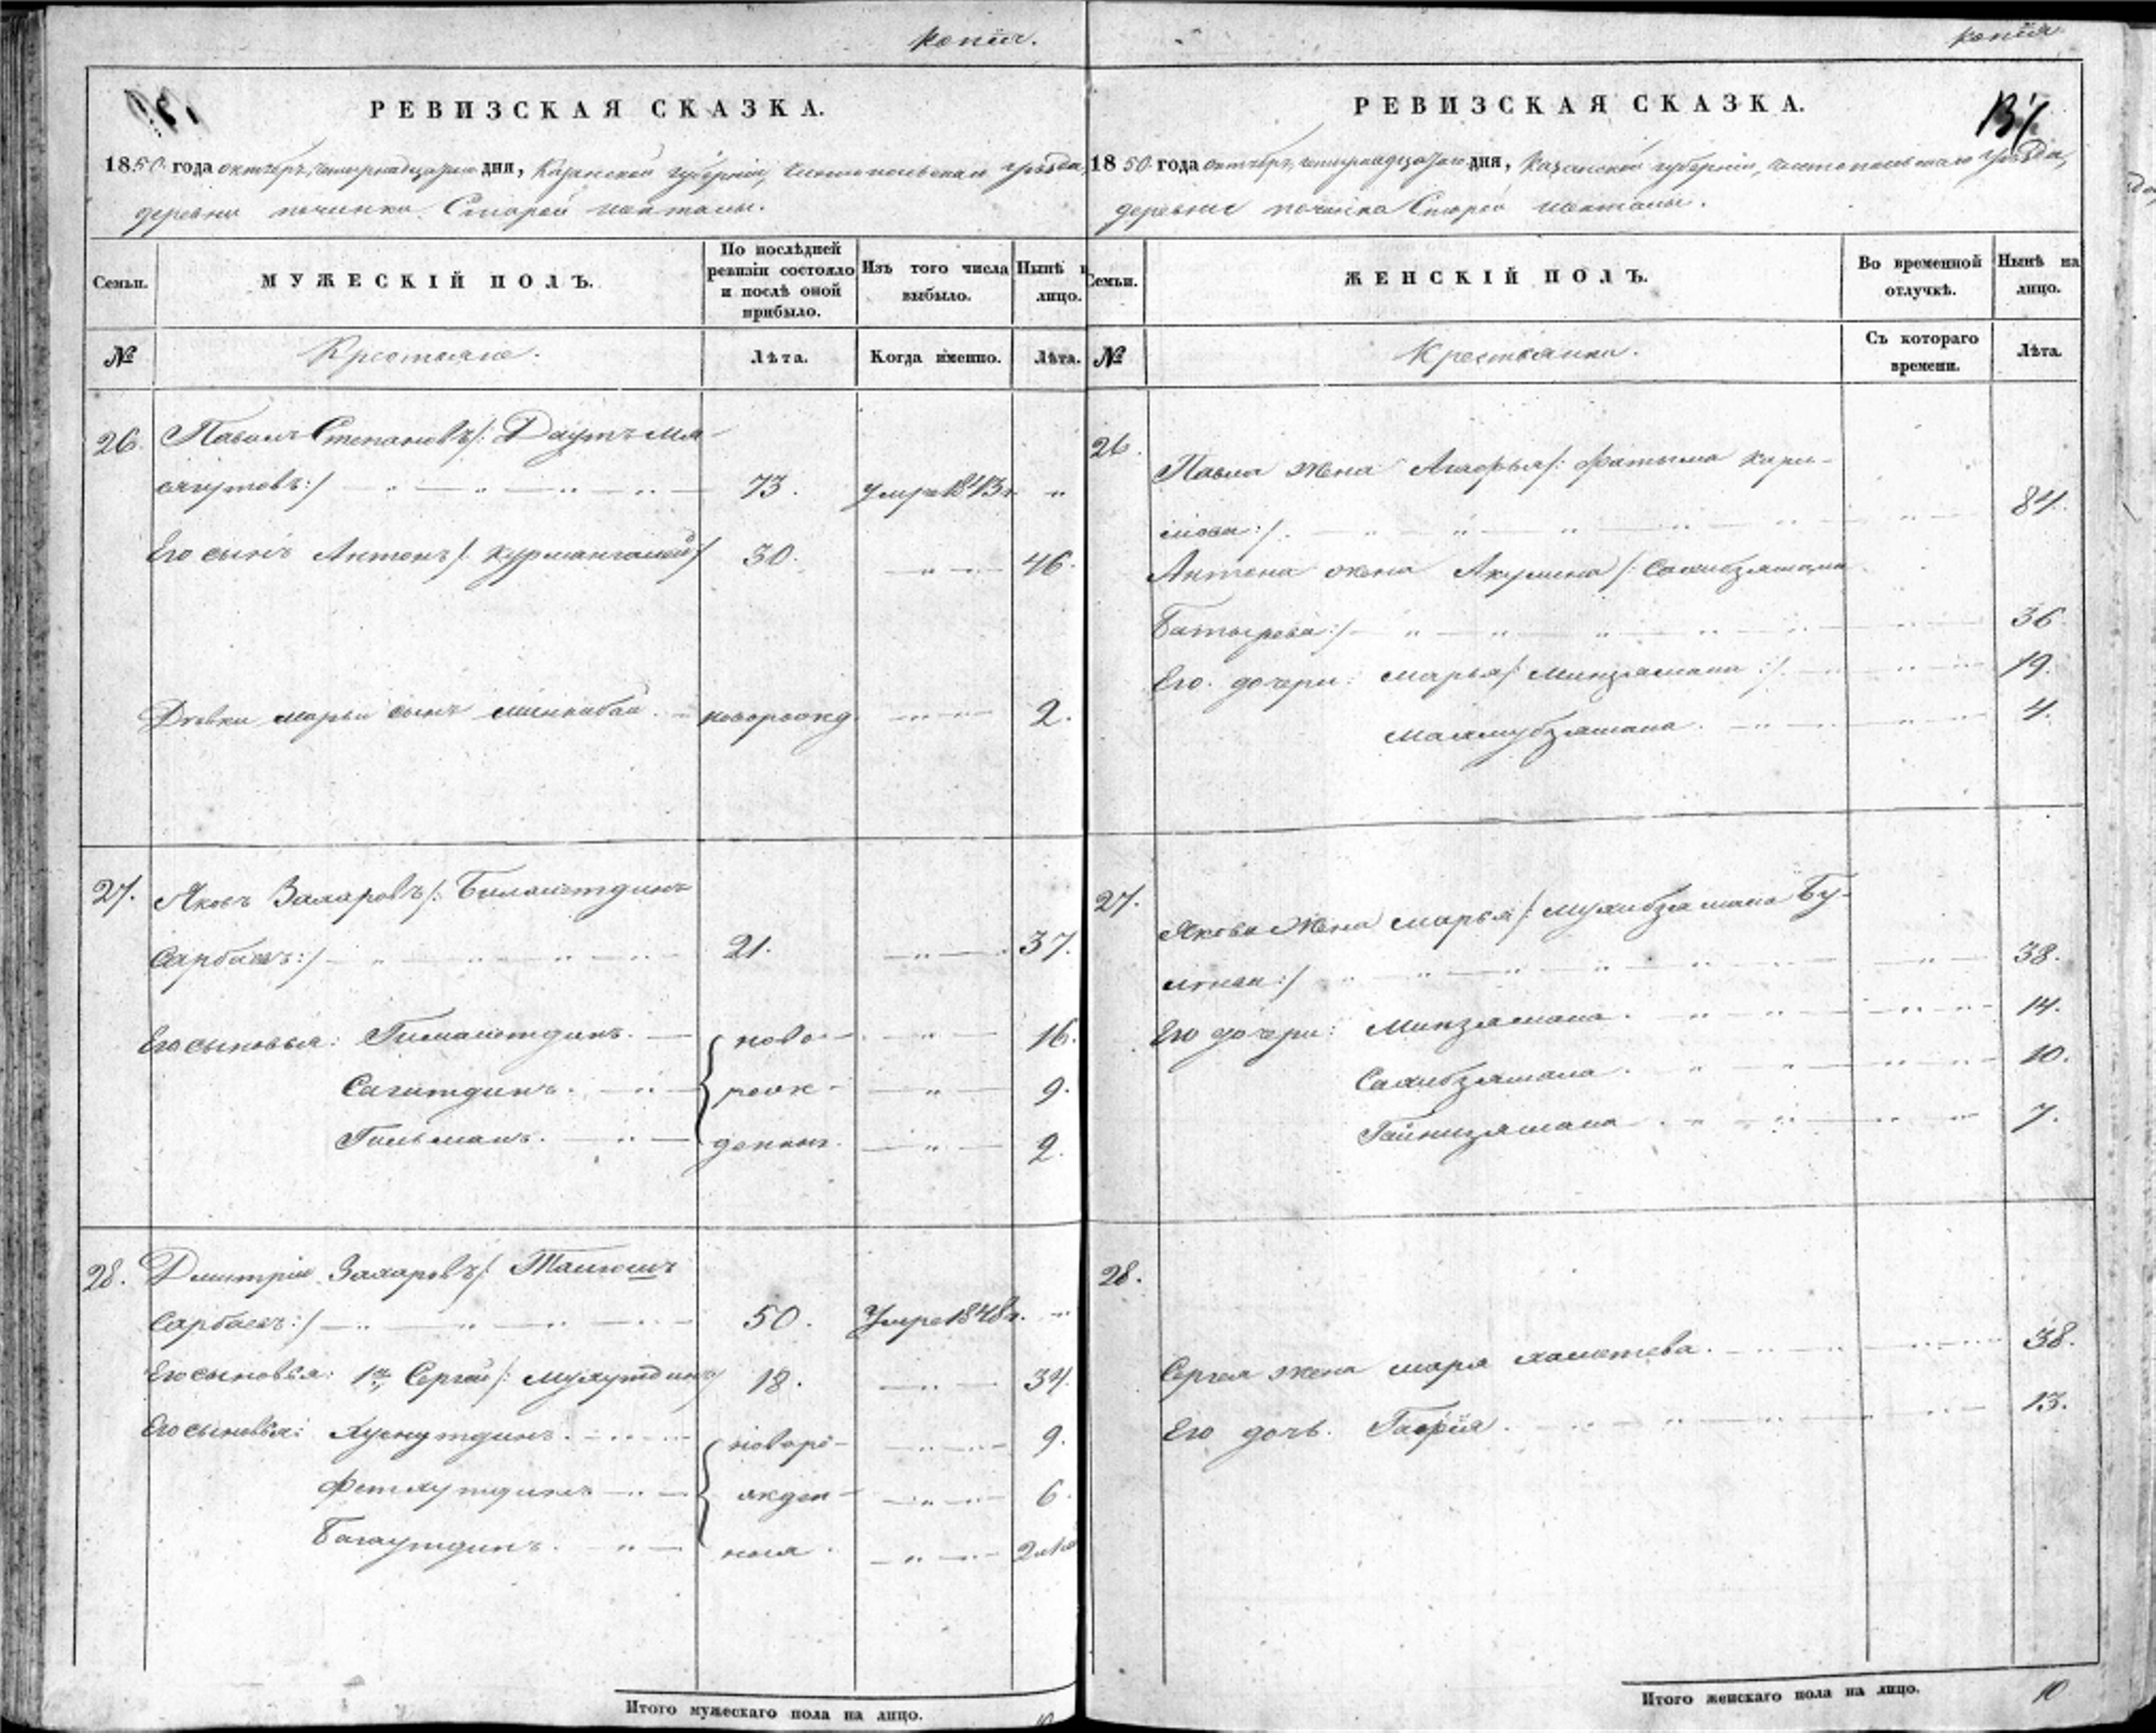 копія.
РЕВИЗСКАЯ СКАЗКА.
1850 года октября четырнадцатаго дня, Казанской губерніи, Чистопольскаго уѣзда,
деревни починка Старой
Семьи.
МУЖЕСКІЙ ПОЛЪ.
По послѣдней ревизіи состояло и послѣ оной прибыло.
Изъ того числа выбыло.
Нынѣ на лицо.
№
Крестьяне.
Лѣта.
Когда именно.
Лѣта.
26. Павелъ Степановъ /: Даутъ Мя-
сягутовъ :/ 73. умре 1843 г. "
Его сынъ Антонъ /: Курмангалей :/ 30. 46.
Дѣвки Марьи сынъ Миннибай. новорожд. 2.
27. Яковъ Захаровъ /: Билалетдинъ
Сарбаевъ :/ 21. 37.
Его сыновья: Гималетдинъ. ново- 16.
Сагитдинъ. рож- 9.
Гильманъ. денные 2.
28. Дмитрій Захаровъ /:
Сарбаевъ :/ 50. Умре 1848 г. "
Его сыновья: 1й, Сергей /: Мухутдинъ :/ 18. 34.
Его сыновья: Хуснутдинъ. новоро- 9.
Фетхутдинъ жден- 6.
Багаутдинъ. ныя. 2
Итого мужескаго пола на лицо.
копія
131
РЕВИЗСКАЯ СКАЗКА.
1850 года октября четырнадцатаго дня, Казанской губерніи, Чистопольскаго уѣзда,
деревни починка Старой
Семьи.
ЖЕНСКІЙ ПОЛЪ.
Во временной отлучкѣ.
Нынѣ на лицо.
№
Крестьянки.
Съ котораго времени.
Лѣта.
26. Павла жена /: Фатыма Кари-
мова :/. 84.
Антона жена Акулина /: Сахибзямала
Батырева :/ 36
Его дочери: Марья /: Минзямала :/. 19.
4.
27. Якова жена Марья /: Мухибзямала Бу-
:/ 38.
Его дочери: Минзямала. 14.
Сахибзямала. 10.
Гайнизямала. 7.
28.
Сергея жена Марья 38.
Его дочь. 13.
Итого женскаго пола на лицо. 10